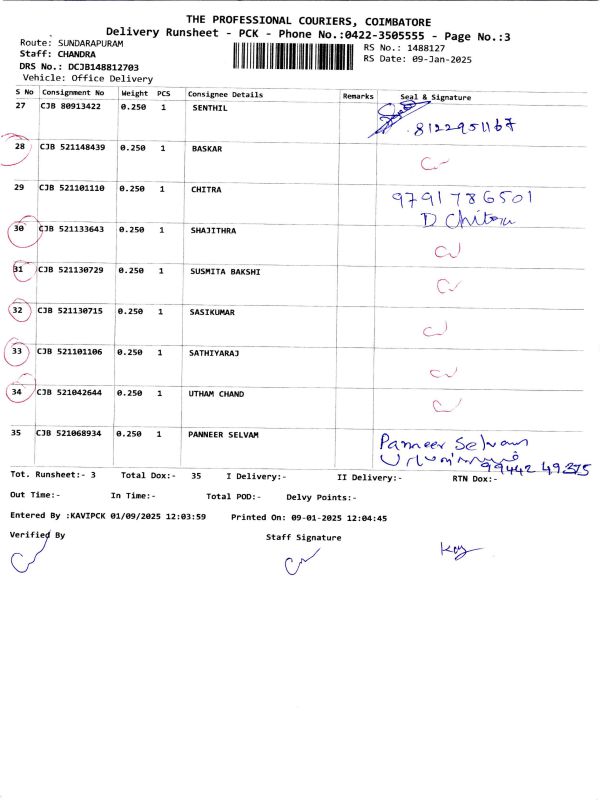 THE PROFESSIONAL COURIERS, COIMBATORE
Delivery Runsheet - PCK - Phone No.:0422-3505555 - Page No.:3
Route: SUNDARAPURAM
RS No.: 1488127
Staff: CHANDRA
RS Date: 09-Jan-2025
DRS No.: DCJB148812703
Vehicle: Office Delivery
S No Consignment No Weight PCS Consignee Details Remarks Seal & Signature
27 CJB 80913422 0.250 1 SENTHIL
8122951167
28 CJB 521148439 0.250 1 BASKAR
29 CJB 521101110 0.250 1 CHITRA 9791786501
D Chitra
30 CJB 521133643 0.250 1 SHAJITHRA
31 CJB 521130729 0.250 1 SUSMITA BAKSHI
32 CJB 521130715 0.250 1 SASIKUMAR
33 CJB 521101106 0.250 1 SATHIYARAJ
34 CJB 521042644 0.250 1 UTHAM CHAND
35 CJB 521068934 0.250 1 PANNEER SELVAM Panneer Selvam
99442 49375
Tot. Runsheet:- 3 Total Dox:- 35 I Delivery:- II Delivery:- RTN Dox:-
Out Time:- In Time:- Total POD:- Delvy Points:-
Entered By :KAVIPCK 01/09/2025 12:03:59 Printed On: 09-01-2025 12:04:45
Verified By Staff Signature